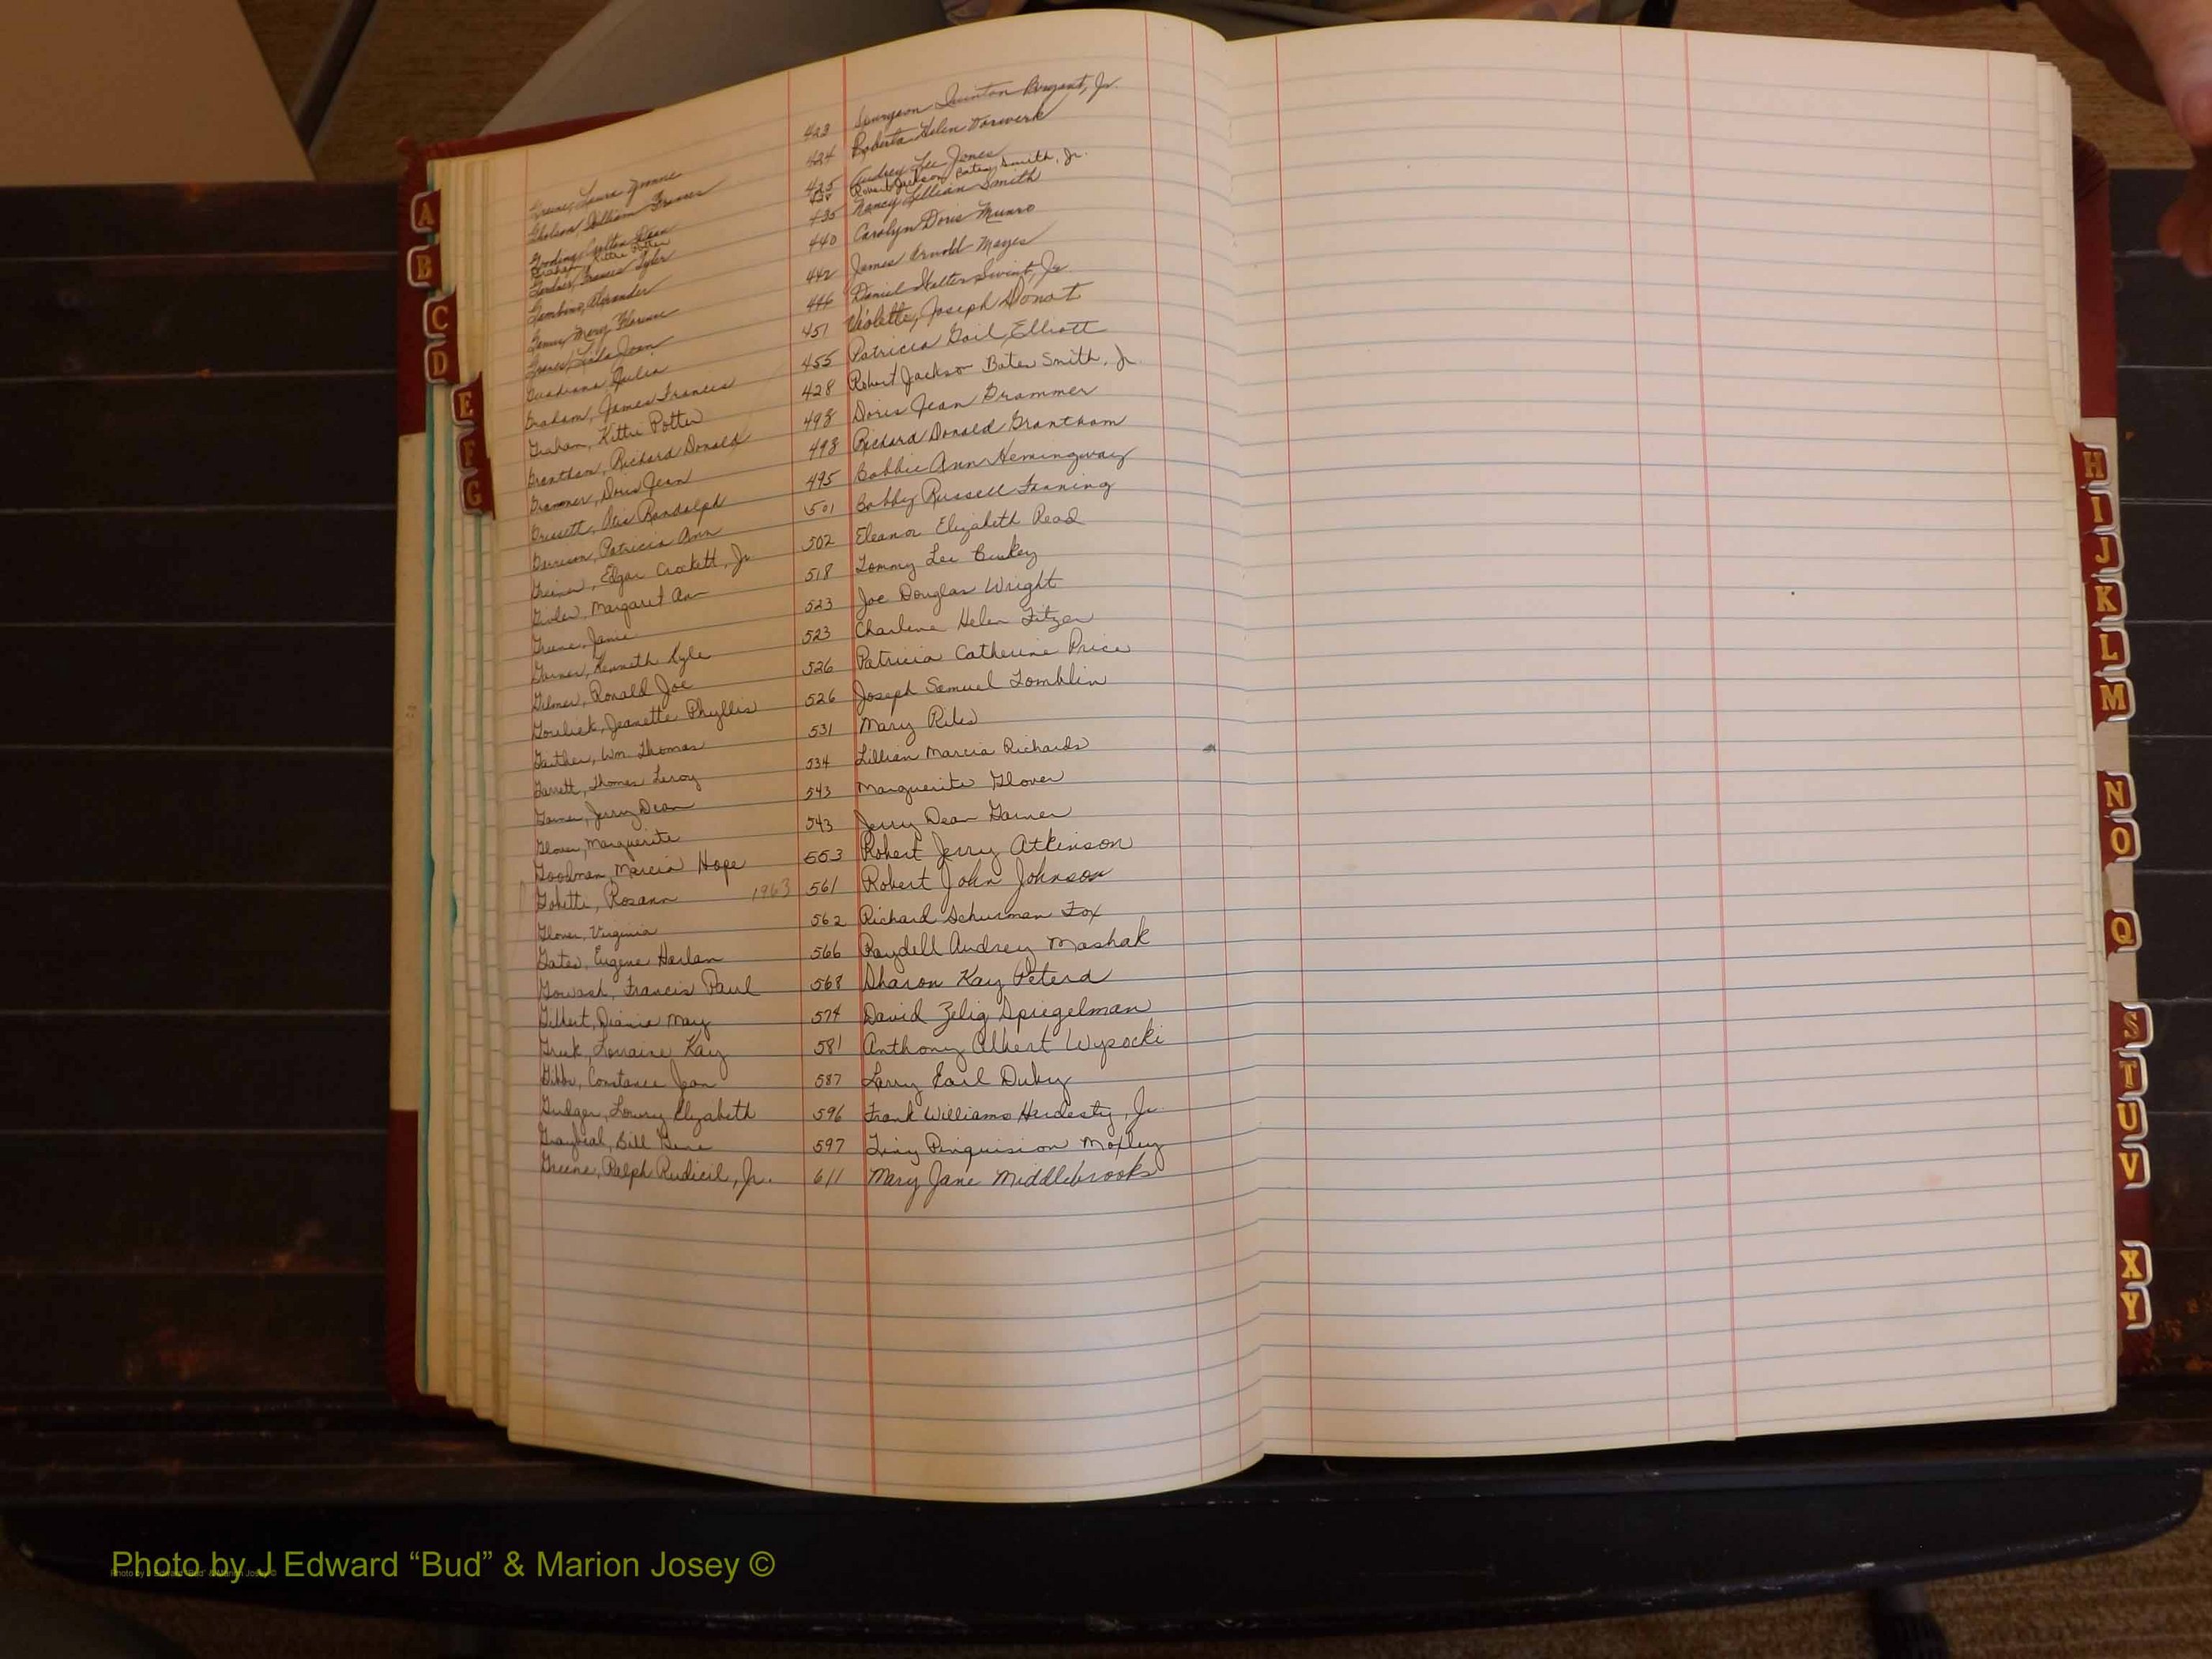 Greene, Laura Yvonne 423 Spurgeon Quinton Bryant, Jr.
Gholson, William Frances 424 Roberta Helen Vorwerk
Gooding, Carlton Dean 425 Audrey Lee Jones
Graham, Kittie Potter 428 Robert Jackson Bates Smith, Jr.
Gardner, Francis Tyler 435 Nancy Lillian Smith
Gambino, Alexander 440 Carolyn Doris Munro
Mary Florence 442 James Arnold Mayes
Linda Joan 446 Daniel Walter Swint, Jr.
Guadiana, Julia 451 Violette, Joseph Donat
Graham, James Francis 455 Patricia Gail Elliott
Graham, Kittie Potter 428 Robert Jackson Bates Smith, Jr.
Grantham, Richard Donald 498 Doris Jean Grammer
Grammer, Doris Jean 498 Richard Donald Grantham
Grissett, Otis Randolph 495 Bobbie Ann Hemingway
Garrison, Patricia Ann 501 Bobby Russell Fanning
Greiner, Edgar Crockett, Jr. 502 Eleanor Elizabeth Read
Givler, Margaret An 518 Tommy Lee
Greene, Janie 523 Joe Douglas Wright
Garner, Kenneth Kyle 523 Charlene Helen Fitzer
Gilmer, Ronald Joe 526 Patricia Catherine Price
Gorlick, Jeanette Phyllis 526 Joseph Samuel Tomblin
Gaither, Wm. Thomas 531 Mary Riles
Garrett, Thomas Leroy 534 Lillian Marcia Richards
Garner, Jerry Dean 543 Marguerite Glover
Glover, Marguerite 543 Jerry Dean Garner
Goodman, Marcia Hope 553 Robert Jerry Atkinson
Gobetti, Rosann 1963 561 Robert John Johnson
Glover, Virginia 562 Richard Schurman Fox
Gates, Eugene Harlan 566 Raydell Audrey Mashak
Gowash, Francis Paul 568 Sharon Kay Peters
Gilbert, Diania May 574 David Zelig Spiegelman
Greek, Lorraine Kay 581 Anthony Albert Wysocki
Gibbs, Constance Jean 587 Larry Earl Duby
Gudger, Lowry Elizabeth 596 Frank Williams Hardesty, Jr.
Graybeal, Bill Gene 597 Moxley
Greene, Ralph Rudicil, Jr. 611 Mary Jane Middlebrooks
A
B
C
D
E
F
G
H
I
J
K
L
M
N
O
Q
S
T
U
V
X
Y
Photo by J Edward “Bud” & Marion Josey ©
Photo by J Edward "Bud" & Marion Josey ©